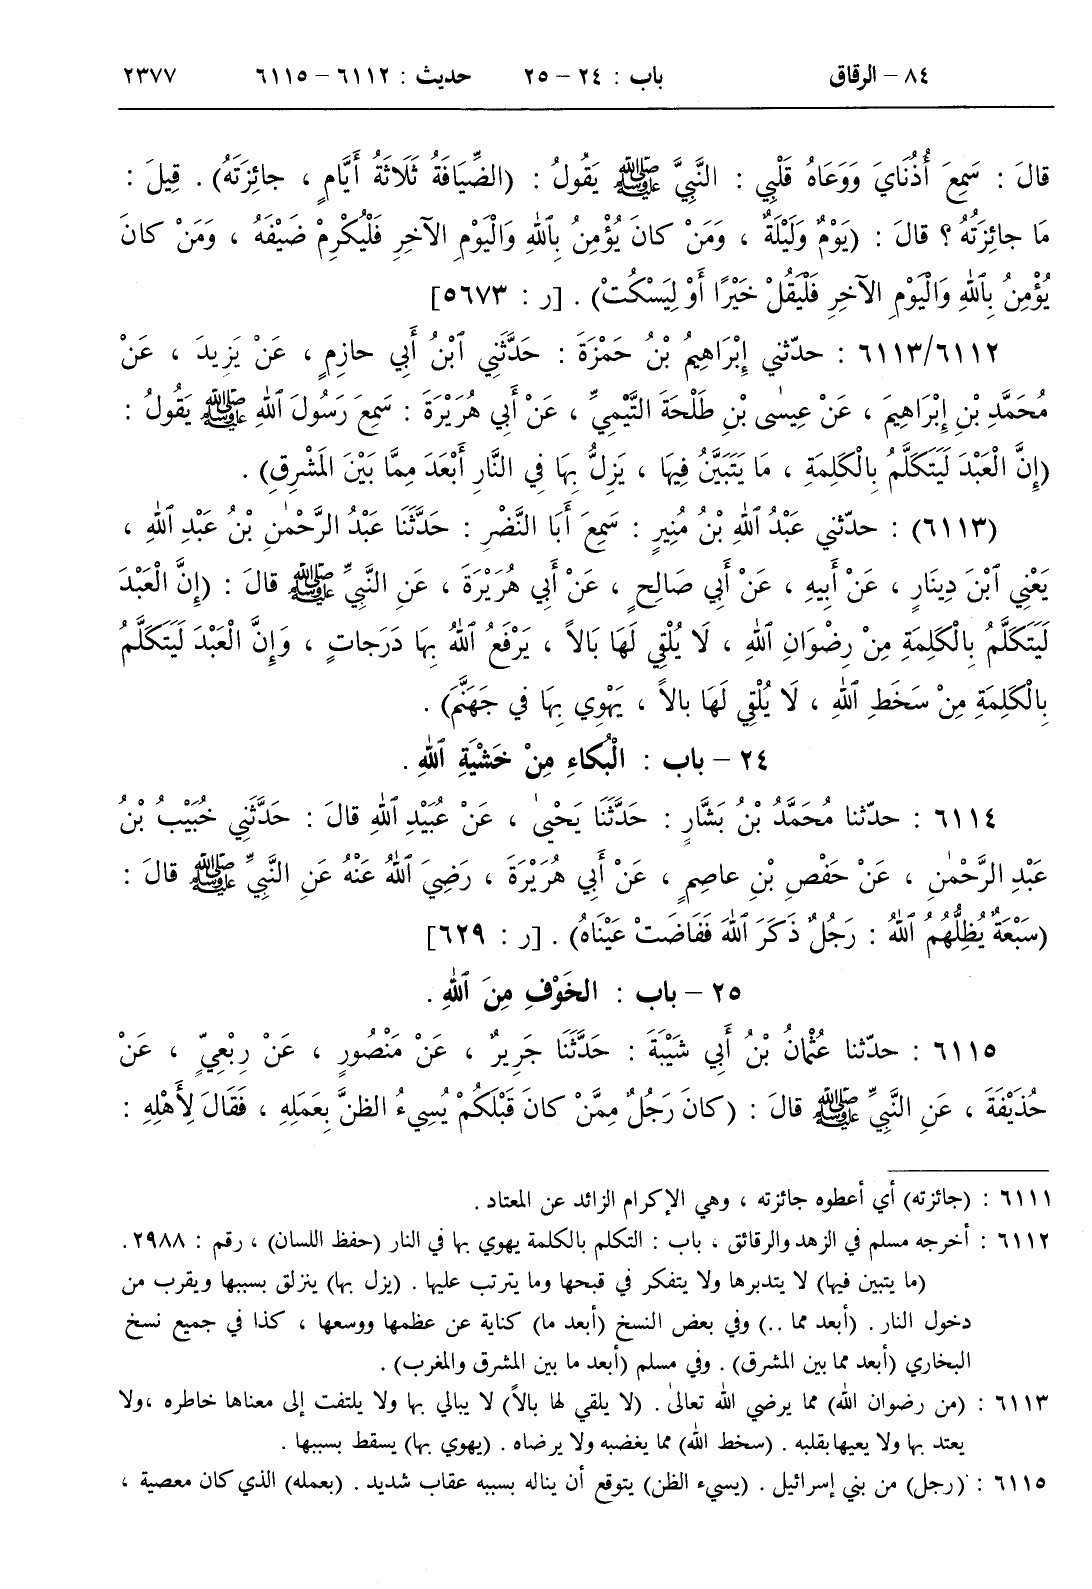 ٨٤ – الرقاق باب : ٢٤ – ٢٥ حديث : ٦١١٢ – ٦١١٥ ٢٣٧٧
قالَ : سَمِعَ أُذُنَايَ وَوَعَاهُ قَلْبِي : النَّبِيَّ ﷺ يَقُولُ : (الضِّيَافَةُ ثَلَاثَةُ أَيَّامٍ ، جائِزَتَهُ) . قِيلَ :
مَا جائِزَتُهُ ؟ قالَ : (يَوْمٌ وَلَيْلَةٌ ، وَمَنْ كانَ يُؤْمِنُ بِٱللهِ وَالْيَوْمِ الآخِرِ فَلْيُكْرِمْ ضَيْفَهُ ، وَمَنْ كانَ
يُؤْمِنُ بِٱللهِ وَالْيَوْمِ الآخِرِ فَلْيَقُلْ خَيْرًا أَوْ لِيَسْكُتْ) . [ر : ٥٦٧٣]
٦١١٣/٦١١٢ : حدّثني إِبْرَاهِيمُ بْنُ حَمْزَةَ : حَدَّثَنِي ٱبْنُ أَبِي حازِمٍ ، عَنْ يَزِيدَ ، عَنْ
مُحَمَّدِ بْنِ إِبْرَاهِيمَ ، عَنْ عِيسٰى بْنِ طَلْحَةَ التَّيْمِيِّ ، عَنْ أَبِي هُرَيْرَةَ : سَمِعَ رَسُولَ ٱللهِ ﷺ يَقُولُ :
(إِنَّ الْعَبْدَ لَيَتَكَلَّمُ بِالْكَلِمَةِ ، مَا يَتَبَيَّنُ فِيهَا ، يَزِلُّ بِهَا فِي النَّارِ أَبْعَدَ مِمَّا بَيْنَ المَشْرِقِ) .
(٦١١٣) : حدّثني عَبْدُ ٱللهِ بْنُ مُنِيرٍ : سَمِعَ أَبَا النَّضْرِ : حَدَّثَنَا عَبْدُ الرَّحْمٰنِ بْنُ عَبْدِ ٱللهِ ،
يَعْنِي ٱبْنَ دِينَارٍ ، عَنْ أَبِيهِ ، عَنْ أَبِي صَالِحٍ ، عَنْ أَبِي هُرَيْرَةَ ، عَنِ النَّبِيِّ ﷺ قالَ : (إِنَّ الْعَبْدَ
لَيَتَكَلَّمُ بِالْكَلِمَةِ مِنْ رِضْوَانِ ٱللهِ ، لَا يُلْقِي لَهَا بَالاً ، يَرْفَعُ ٱللهُ بِهَا دَرَجاتٍ ، وَإِنَّ الْعَبْدَ لَيَتَكَلَّمُ
بِالْكَلِمَةِ مِنْ سَخَطِ ٱللهِ ، لَا يُلْقِي لَهَا بالاً ، يَهْوِي بِهَا في جَهَنَّمَ) .
٢٤ – باب : الْبُكاءِ مِنْ خَشْيَةِ ٱللهِ .
٦١١٤ : حدّثنا مُحَمَّدُ بْنُ بَشَّارٍ : حَدَّثَنَا يَحْيىٰ ، عَنْ عُبَيْدِ ٱللهِ قالَ : حَدَّثَنِي خُبَيْبُ بْنُ
عَبْدِ الرَّحْمٰنِ ، عَنْ حَفْصِ بْنِ عاصِمٍ ، عَنْ أَبِي هُرَيْرَةَ ، رَضِيَ ٱللهُ عَنْهُ عَنِ النَّبِيِّ ﷺ قالَ :
(سَبْعَةٌ يُظِلُّهُمُ ٱللهُ : رَجُلٌ ذَكَرَ ٱللهَ فَفَاضَتْ عَيْنَاهُ) . [ر : ٦٢٩]
٢٥ – باب : الخَوْفِ مِنَ ٱللهِ .
٦١١٥ : حدّثنا عُثْمانُ بْنُ أَبِي شَيْبَةَ : حَدَّثَنَا جَرِيرٌ ، عَنْ مَنْصُورٍ ، عَنْ رِبْعِيٍّ ، عَنْ
حُذَيْفَةَ ، عَنِ النَّبِيِّ ﷺ قالَ : (كانَ رَجُلٌ مِمَّنْ كانَ قَبْلَكُمْ يُسِيءُ الظنَّ بِعَمَلِهِ ، فَقَالَ لِأَهْلِهِ :
٦١١١ : (جائزته) أي أعطوه جائزته ، وهي الإكرام الزائد عن المعتاد .
٦١١٢ : أخرجه مسلم في الزهد والرقائق ، باب : التكلم بالكلمة يهوي بها في النار (حفظ اللسان) ، رقم : ٢٩٨٨ .
(ما يتبين فيها) لا يتدبرها ولا يتفكر في قبحها وما يترتب عليها . (يزل بها) ينزلق بسببها ويقرب من
دخول النار . (أبعد مما ..) وفي بعض النسخ (أبعد ما) كناية عن عظمها ووسعها ، كذا في جميع نسخ
البخاري (أبعد مما بين المشرق) . وفي مسلم (أبعد ما بين المشرق والمغرب) .
٦١١٣ : (من رضوان الله) مما يرضي الله تعالىٰ . (لا يلقي لها بالاً) لا يبالي بها ولا يلتفت إلى معناها خاطره ،ولا
يعتد بها ولا يعيها بقلبه . (سخط الله) مما يغضبه ولا يرضاه . (يهوي بها) يسقط بسببها .
٦١١٥ : (رجل) من بني إسرائيل . (يسيء الظن) يتوقع أن يناله بسببه عقاب شديد . (بعمله) الذي كان معصية ،